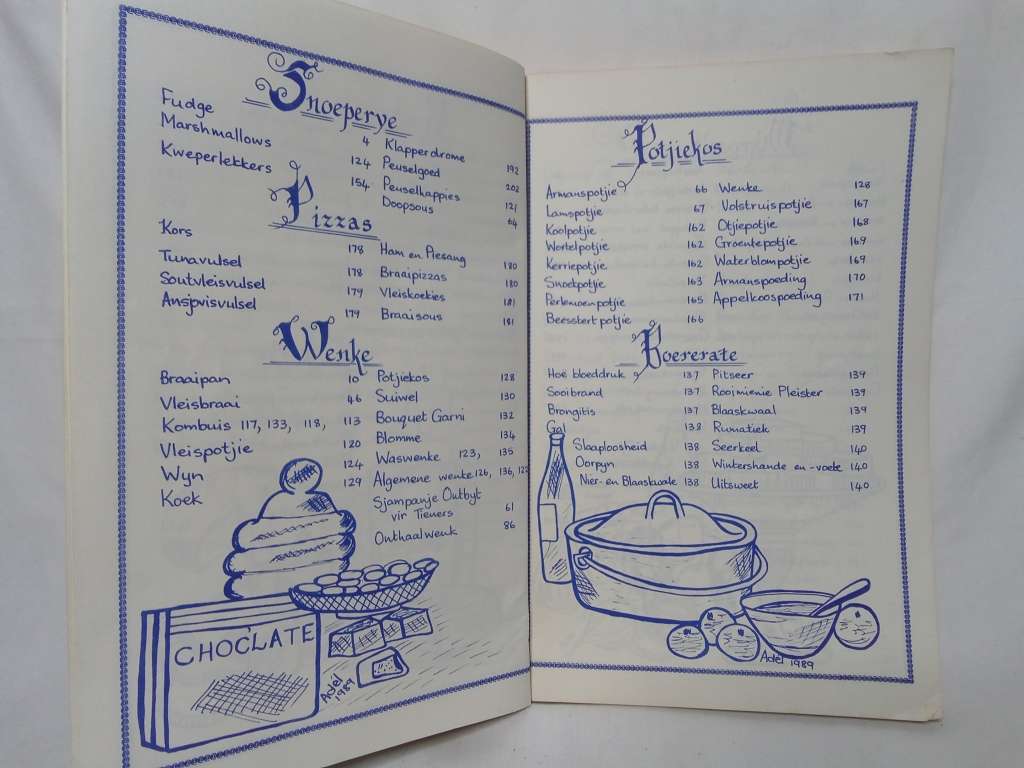 Snoeperye
Fudge 4
Marshmallows 124
Kweperlekkers 154
Klapperdrome 192
Peuselgoed 202
Peuselhappies 121
Doopsous 64
Pizzas
Kors 178
Tunavulsel 178
Soutvleisvulsel 179
Ansjovisvulsel 179
Ham en Piesang 180
Braaipizzas 180
Vleiskoekies 181
Braaisous 181
Wenke
Braaipan 10
Vleisbraai 46
Kombuis 117, 133, 118, 113
Vleispotjie 120
Wyn 124
Koek 129
Potjiekos 128
Suiwel 130
Bouquet Garni 132
Blomme 134
Waswenke 123, 135
Algemene wenke 126, 136,
Sjampanje Outbyt
vir Tieners 61
Onthaalwenk 86
CHOCLATE
Adél
1989
Potjiekos
Armanspotjie 66
Lamspotjie 67
Koolpotjie 162
Wortelpotjie 162
Kerriepotjie 162
Snoekpotjie 163
Perlemoenpotjie 165
Beesstertpotjie 166
Wenke 128
Volstruispotjie 167
Otjiepotjie 168
Groentepotjie 169
Waterblompotjie 169
Armanspoeding 170
Appelkoospoeding 171
Boererate
Hoe bloeddruk 137
Sooibrand 137
Brongitis 137
Gal 138
Slaaploosheid 138
Oorpyn 138
Nier- en Blaaskwale 138
Pitseer 139
Rooimienie Pleister 139
Blaaskwaal 139
Rumatiek 139
Seerkeel 140
Wintershande en -voete 140
Uitsweet 140
Adél 1989